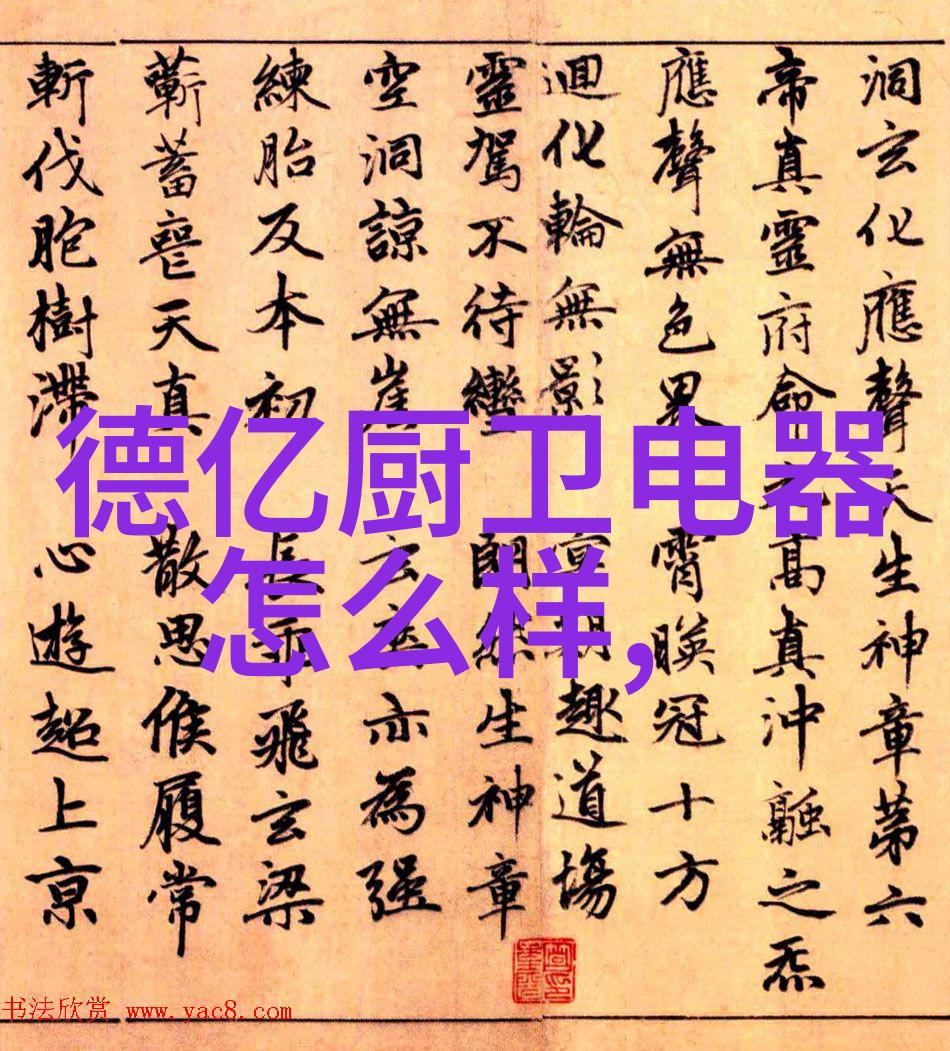 德亿厨卫电器
怎么样,
洞玄化應聲天生神章苐六
帝真靈府命元高真沖融之炁
應聲無色界 霄暎冠十方
迴化輪無影 冥期趣道場
靈駕不待轡 朗然生神章
空洞諒無崖 玄亦為强
練胎反本初 長乎飛玄梁
蘄蓄喪天真 散思候履常
斬伐胞樹滯 心遊超上京
书法欣赏 www.yac8.com